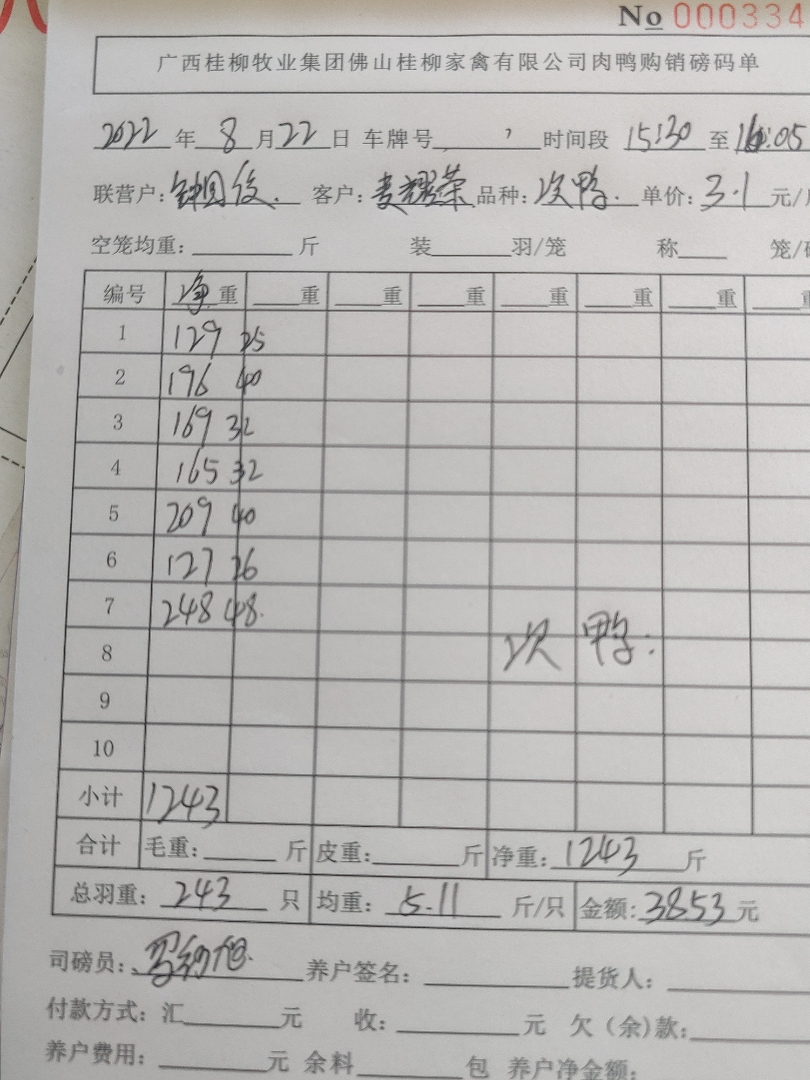 No 000334
广西桂柳牧业集团佛山桂柳家禽有限公司肉鸭购销磅码单
2022 年 8 月 22 日 车牌号 时间段 15:30 至 16:05
联营户: 客户: 麦耀荣 品种: 次鸭. 单价: 3.1 元/
空笼均重: 斤 装 羽/笼 称 笼/
编号 净重 重 重 重 重 重 重 重
1 129 25
2 196 40
3 169 32
4 165 32
5 209 40
6 127 26
7 248 48.
8 次鸭.
9
10
小计 1243
合计 毛重: 斤 皮重: 斤 净重: 1243 斤
总羽重: 243 只 均重: 5.11 斤/只 金额: 3853 元
司磅员: 养户签名: 提货人:
付款方式: 汇 元 收: 元 欠(余)款:
养户费用: 元 余料 包 养户净金额: